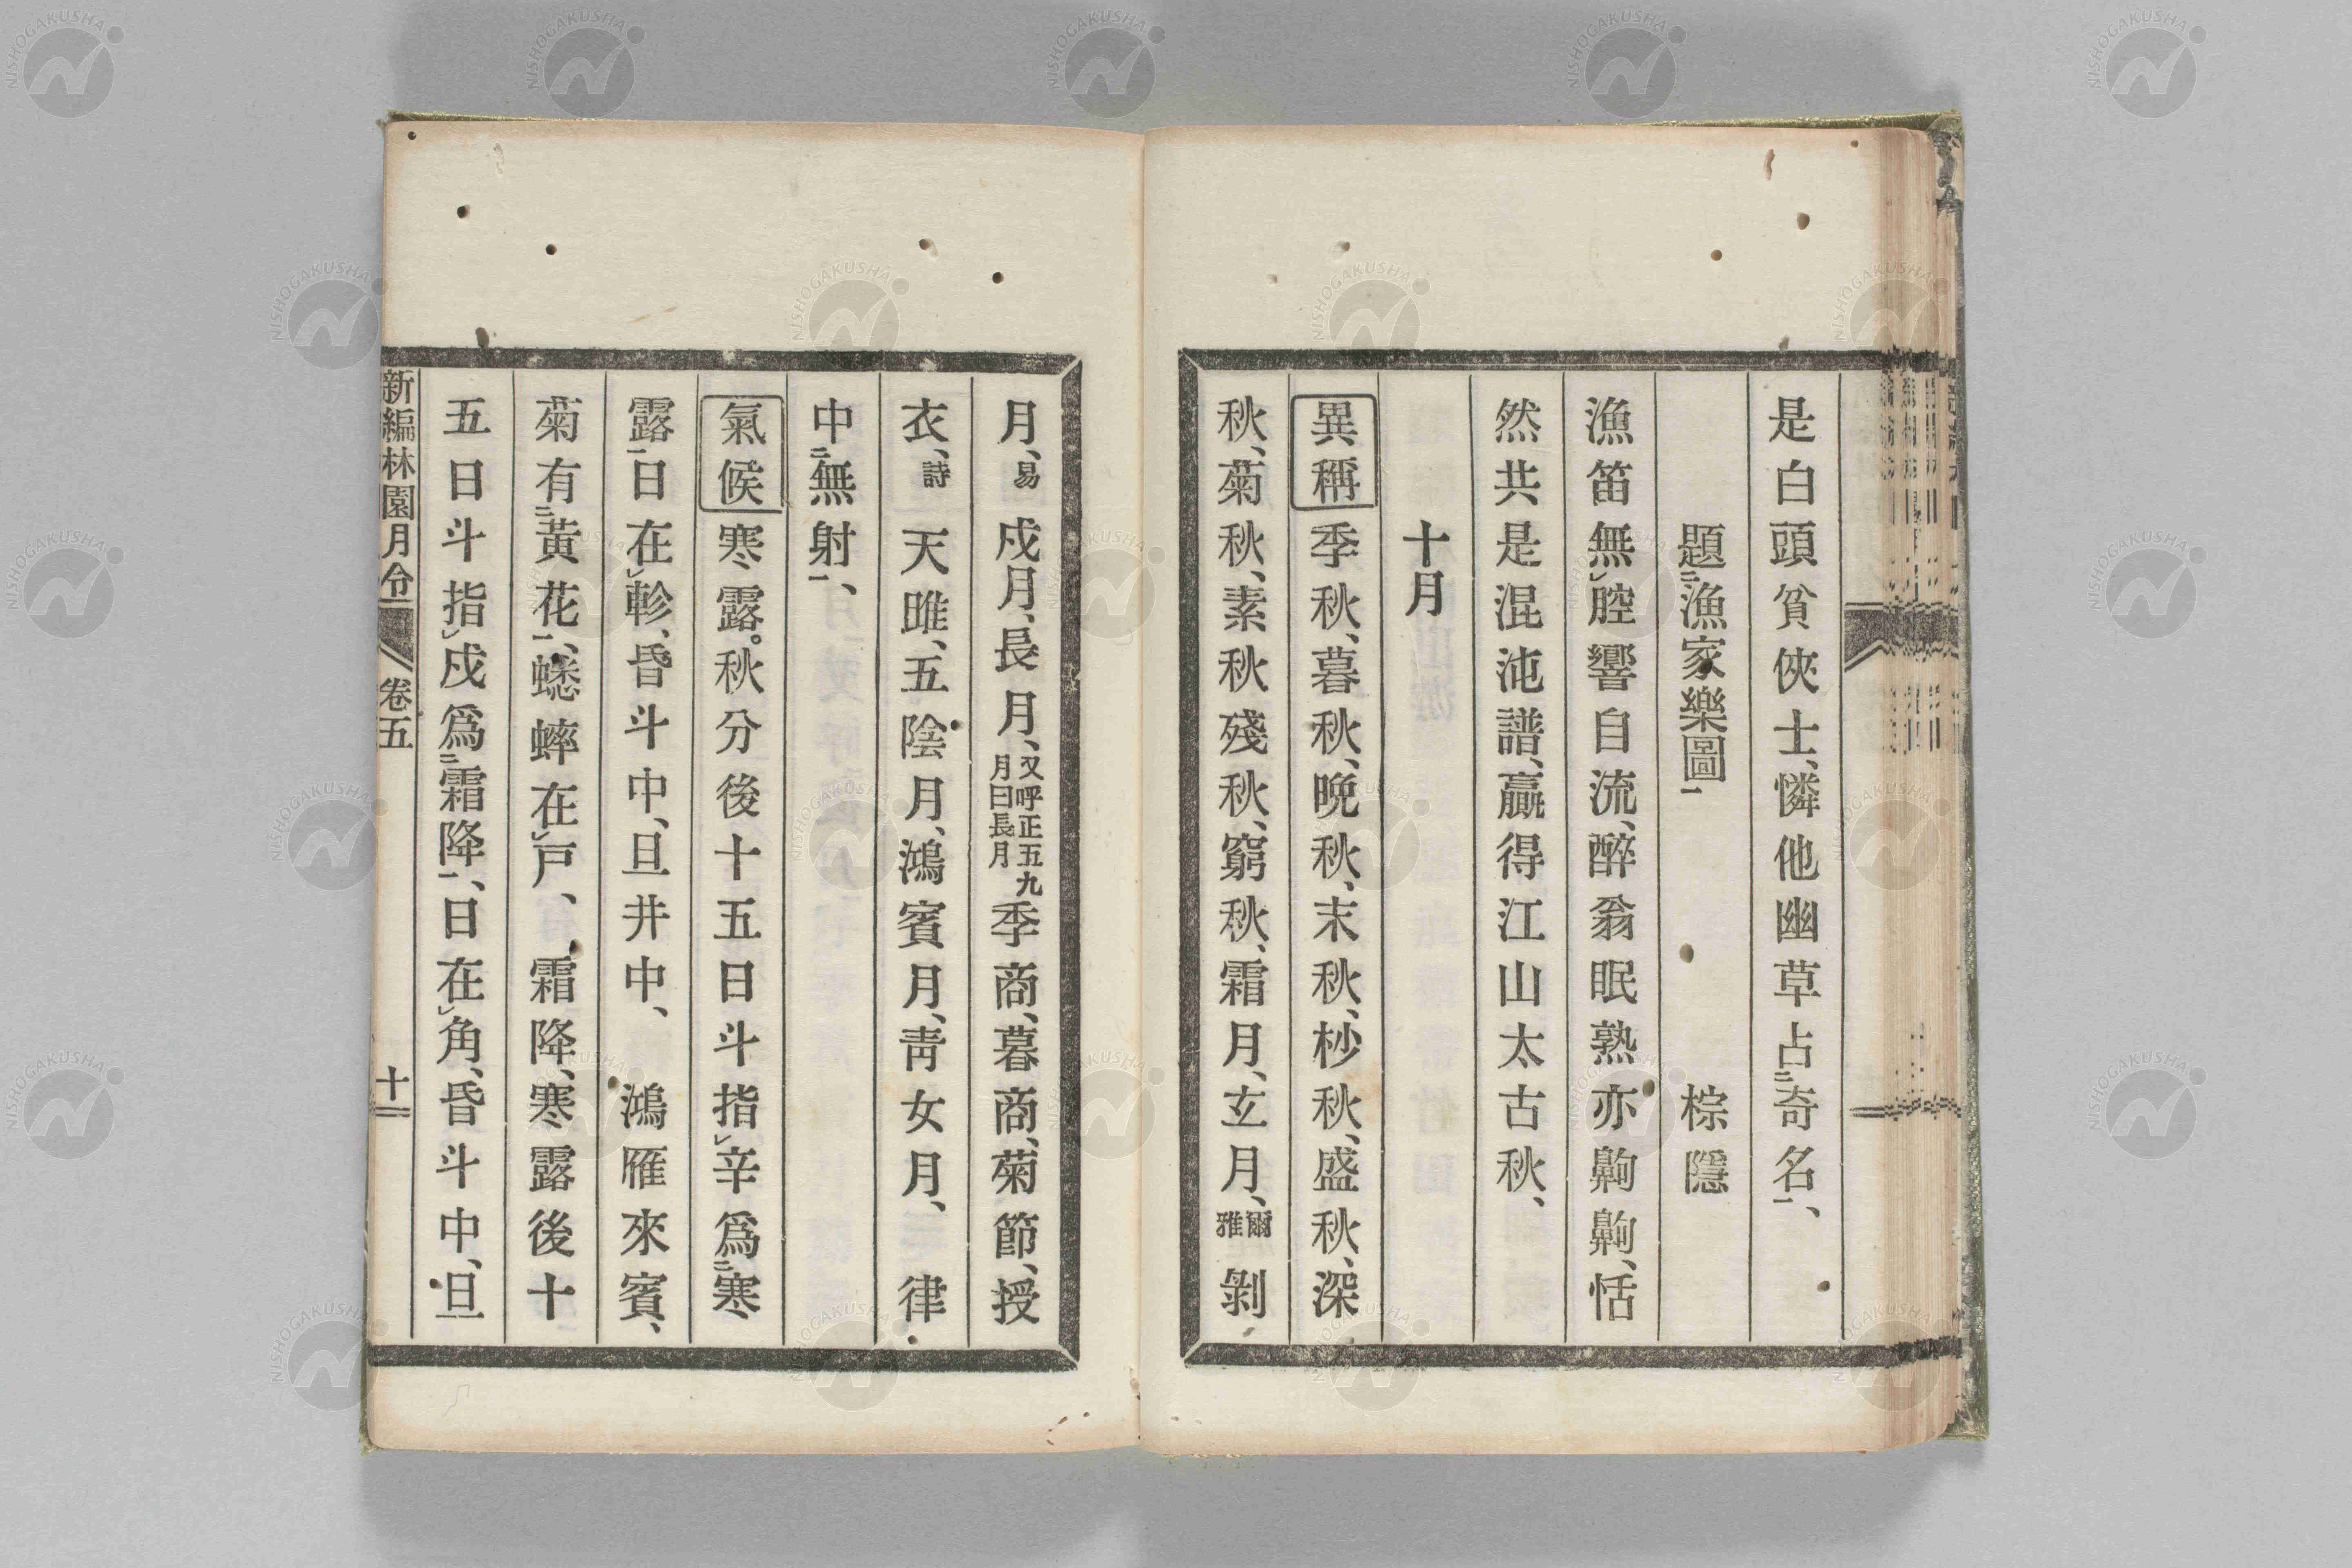 是白頭貧俠士、憐他幽草占㆓奇名㆒、
題㆓漁家樂圖㆒　棕隱
漁笛無㆑腔響自流、醉翁眠熟亦齁齁、恬
然共是混沌譜、贏得江山太古秋、
十月
異稱　季秋、暮秋、晩秋、末秋、杪秋、盛秋、深
秋、菊秋、素秋殘秋、窮秋、霜月、玄月、爾雅　剝
月、易　戍月、長月、又呼正五九月曰長月　季商、暮商、菊節、授
衣、詩　天雎、五陰月、鴻賓月、靑女月、　律
中㆓無射㆒、
氣候　寒露。秋分後十五日斗指㆑辛爲㆓寒
露㆒日在㆑軫、昏斗中、旦井中、　鴻雁來賓、
菊有㆓黃花㆒、蟋蟀在㆑戸、　霜降、寒露後十
五日斗指㆑戍爲㆓霜降㆒、日在㆑角、昏斗中、旦
新編林園月令　卷五　十二